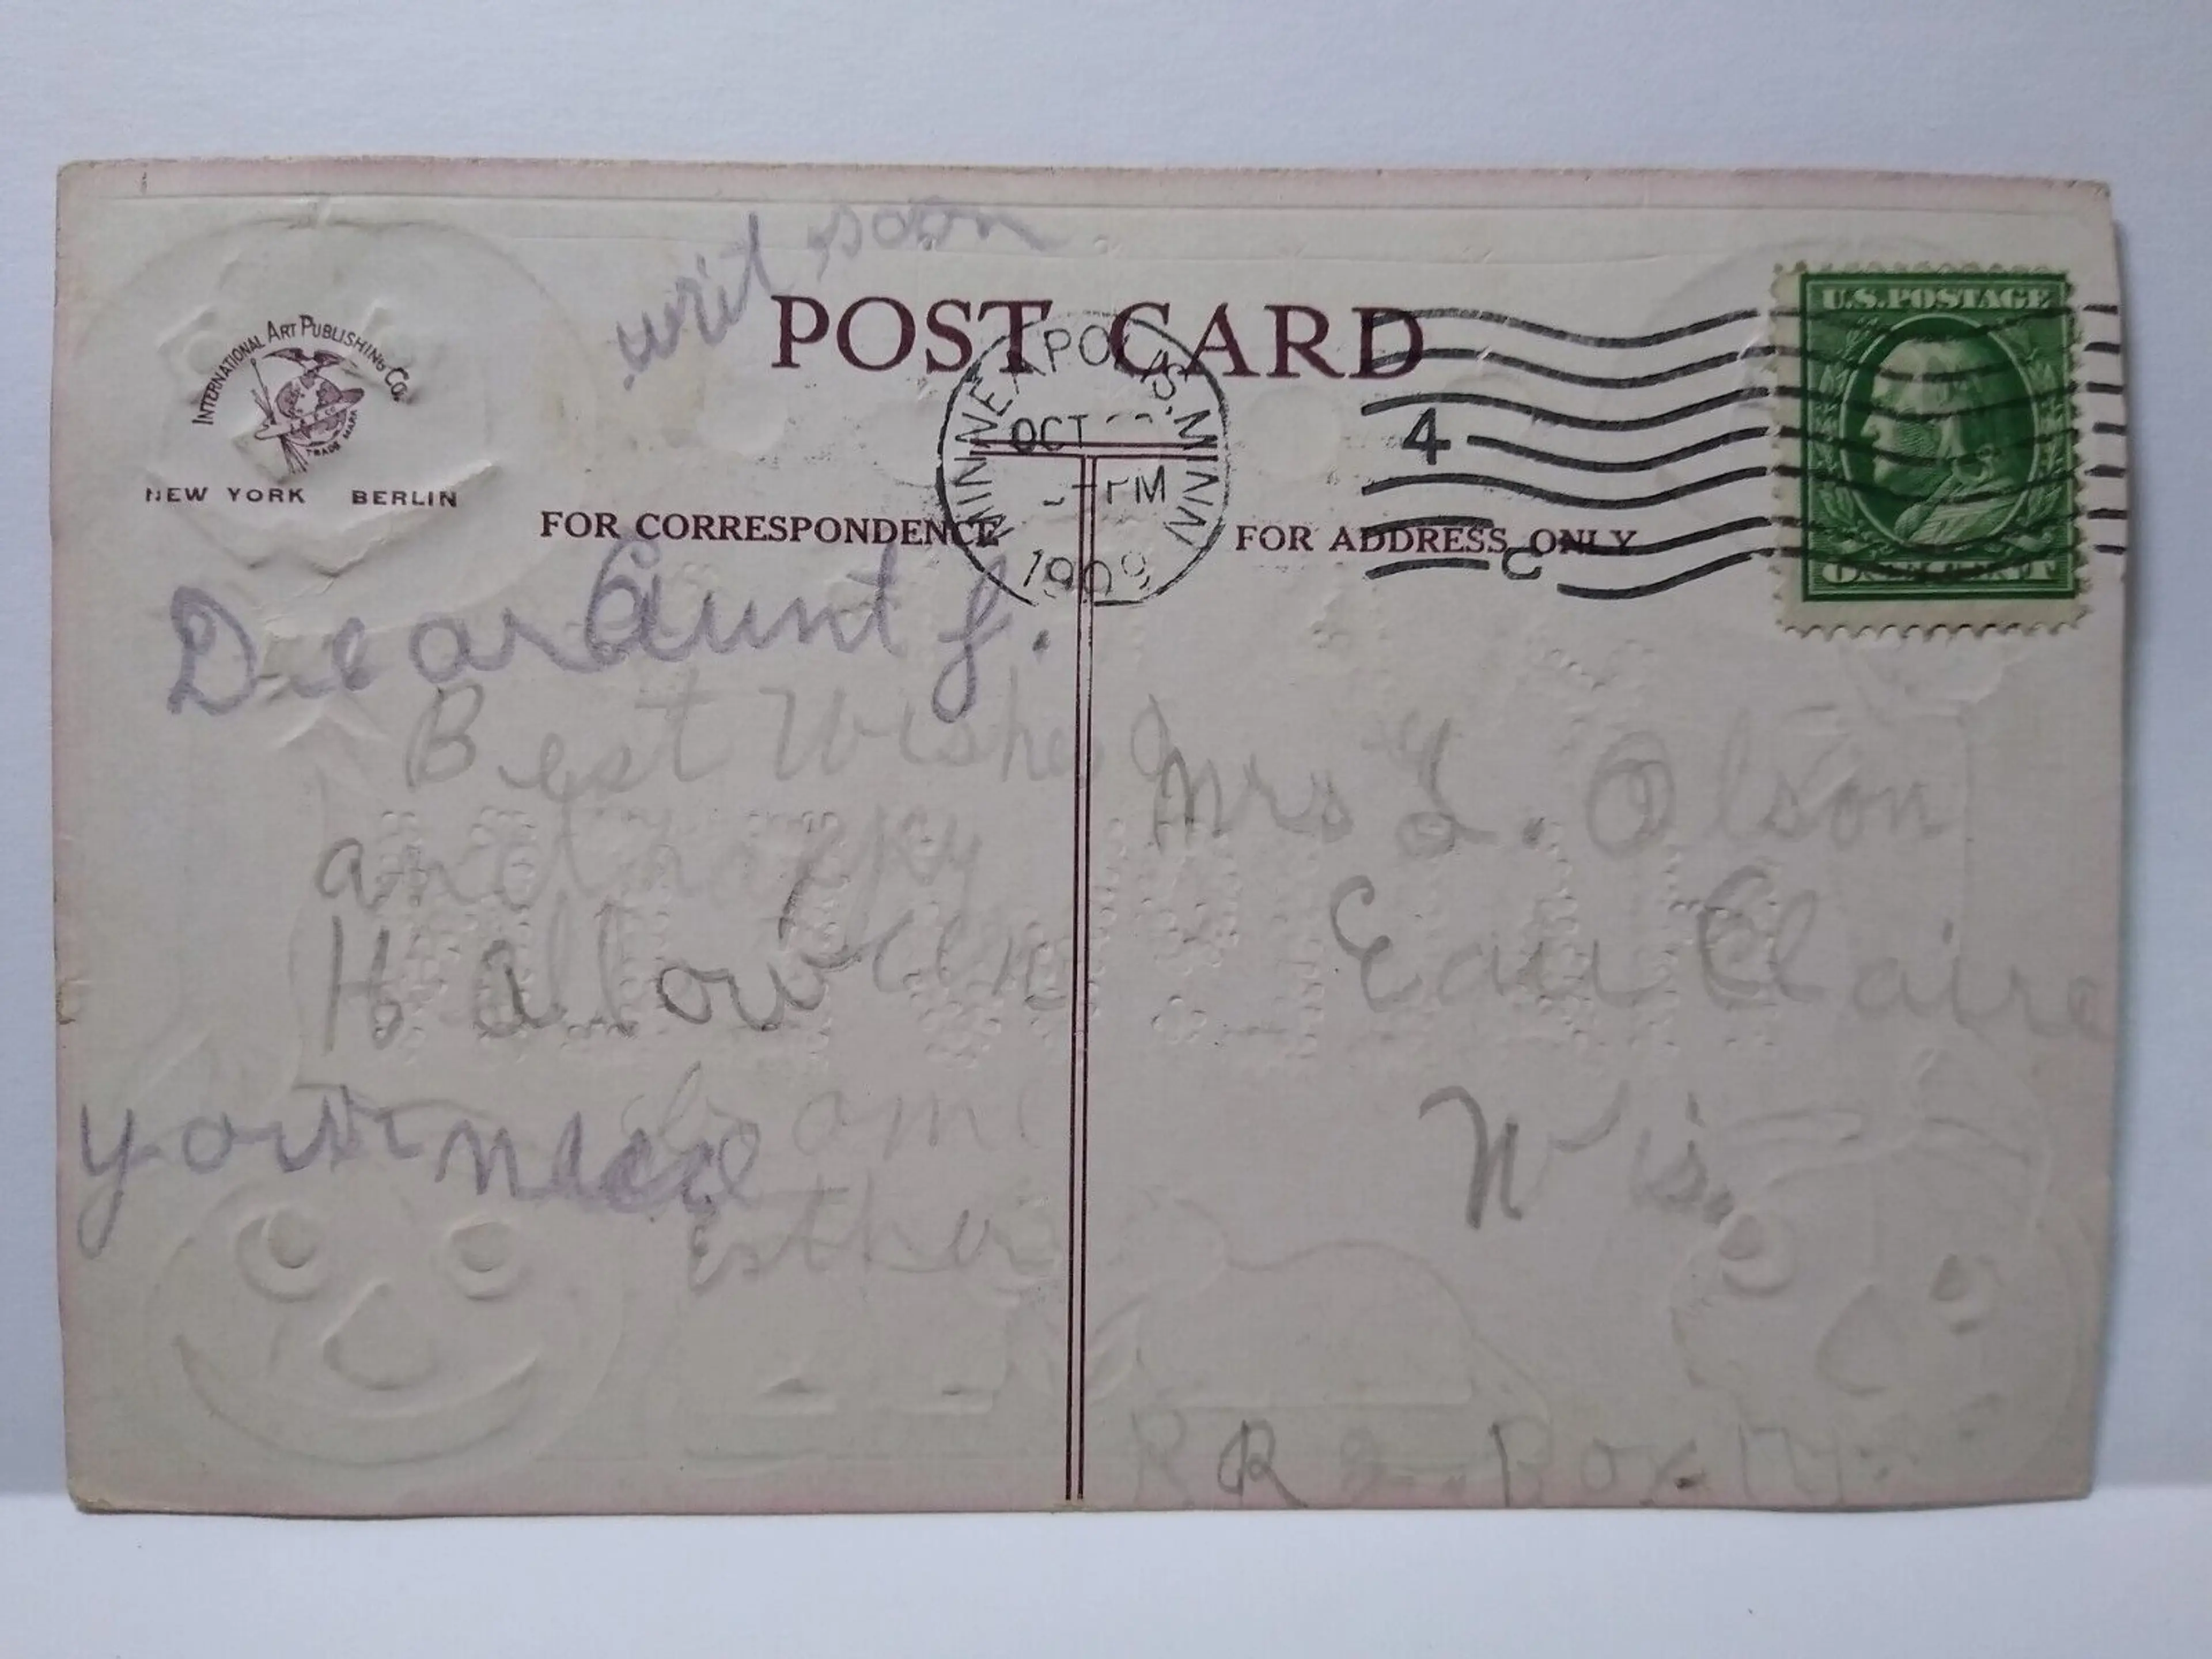 writ soon
POST CARD
INTERNATIONAL ART PUBLISHING CO.
TRADE MARK
NEW YORK BERLIN
MINNEAPOLIS, MINN
OCT
PM
1909
4
U.S. POSTAGE
ONE CENT
FOR CORRESPONDENCE
FOR ADDRESS ONLY
Dear Aunt L.
Best Wishes
and happy
Halloween
from
your niece
Esther
Mrs L. Olson
Eau Claire
Wis.
RR Box